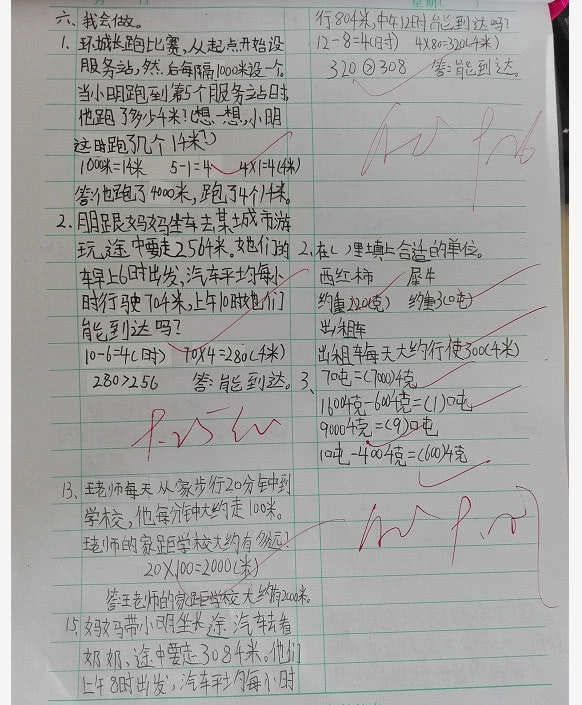 六、我会做。
1. 环城长跑比赛,从起点开始设
服务站,然后每隔1000米设一个。
当小明跑到第5个服务站时,
他跑了多少千米?(想一想,小明
这时跑了几个1千米?)
1000米=1千米 5-1=4 4×1=4(千米)
答:他跑了4000米,跑了4个1千米。
2. 朋朋跟妈妈坐车去某城市游
玩,途中要走256千米。她们的
车早上6时出发,汽车平均每小
时行驶70千米,上午10时她们
能到达吗?
10-6=4(时) 70×4=280(千米)
280>256 答:能到达。
13、王老师每天从家步行20分钟到
学校,他每分钟大约走100米。
王老师的家距学校大约有多远?
20×100=2000(米)
答:王老师的家距学校大约有2000米。
15、妈妈带小明坐长途汽车去看
奶奶,途中要走308千米。他们
上午8时出发,汽车平均每小时
行80千米,中午12时能到达吗?
12-8=4(时) 4×80=320(千米)
320>308 答:能到达。
2、在( )里填上合适的单位。
西红柿 犀牛
约重220(克) 约重3(吨)
出租车
出租车每天大约行使300(千米)
3、7吨=(7000)千克
1600千克-600千克=(1)吨
9000千克=(9)吨
1吨-400千克=(600)千克